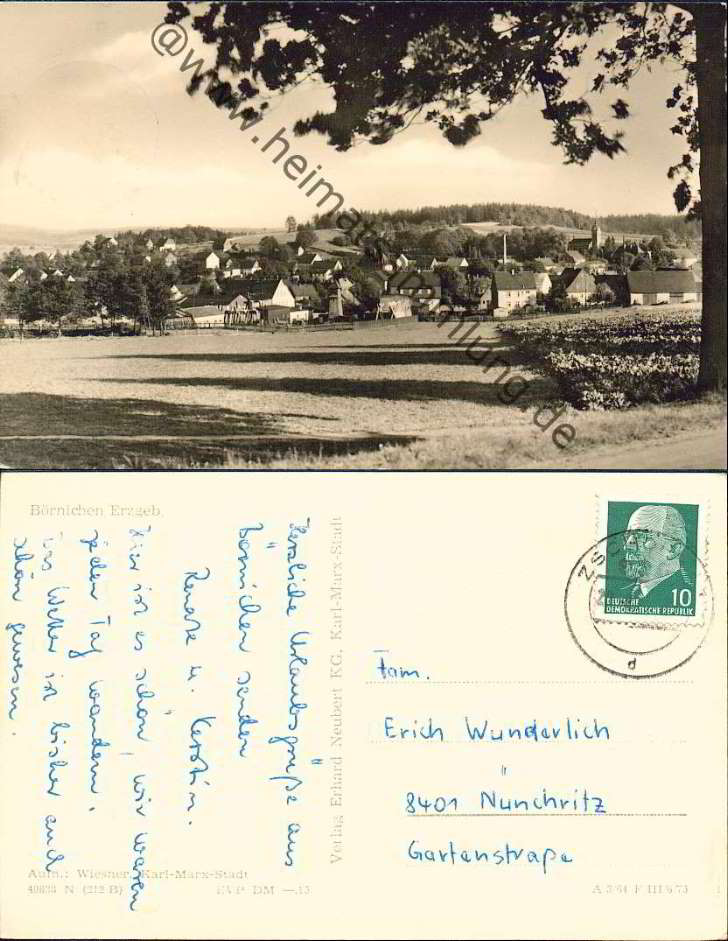 @www.heimatsammlung.de
Börnichen Erzgeb.
Herzliche Urlaubsgrüße aus
Börnichen senden
Renate u. Kerstin.
Hier ist es schön, wir waren
jeden Tag wandern,
das Wetter ist bisher auch
schön gewesen.
Aufn.: Wiesner, Karl-Marx-Stadt
N (212 B) EVP DM —.13
Verlag Erhard Neubert KG, Karl-Marx-Stadt
10
DEUTSCHE
DEMOKRATISCHE REPUBLIK
d
Fam.
Erich Wunderlich
8401 Nünchritz
Gartenstraße
A 3/64 F III/6/73